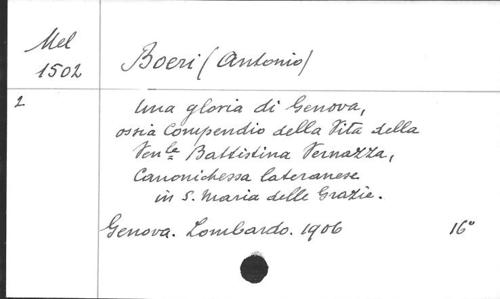 Mel
1502
Boeri (Antonio)
2
Una gloria di Genova,
ossia Compendio della Vita della
Venle Battistina Vernazza,
Canonichessa lateranese
in S. Maria delle Grazie.
Genova. Lombardo. 1906 16°